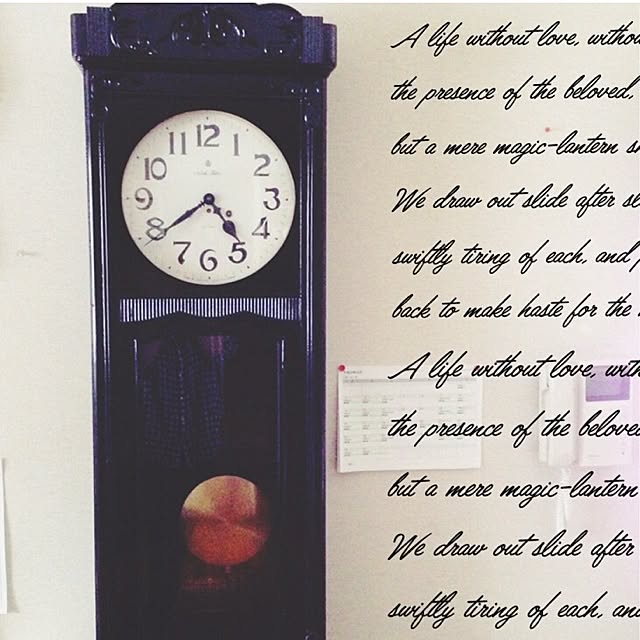 12
11 1
10 2
9 3
8 4
7 5
6
A life without love,
the presence of the beloved,
but a mere magic-lantern
We draw out slide after
swiftly tiring of each, and
back to make haste for the
A life without love,
the presence of the beloved
but a mere magic-lantern
We draw out slide after
swiftly tiring of each, and